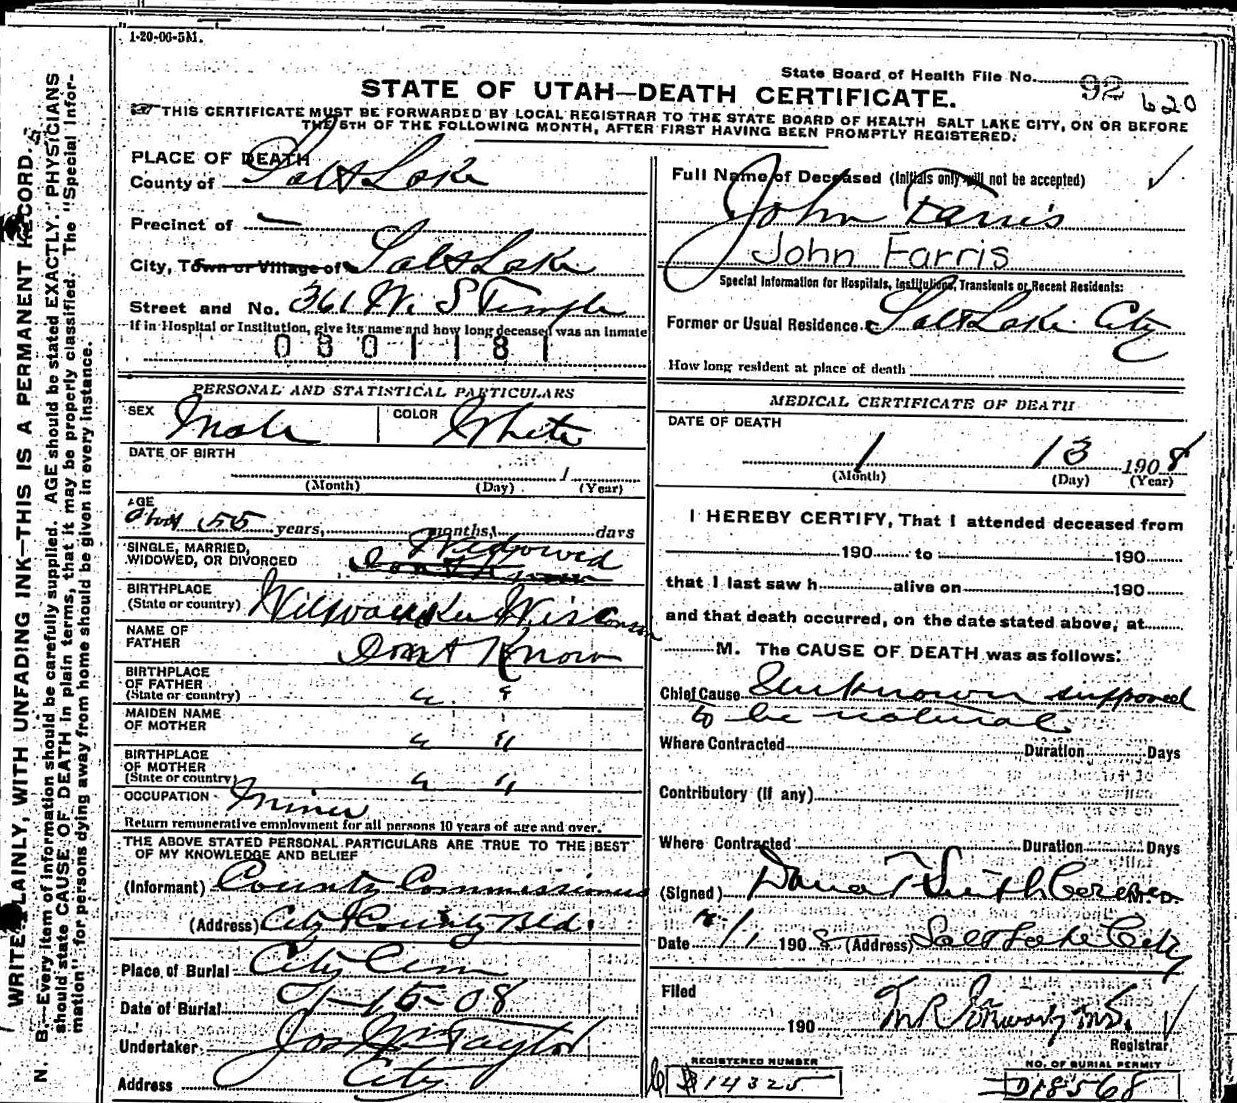 1-20-06-5M.
State Board of Health File No. 92 620
STATE OF UTAH—DEATH CERTIFICATE.
THIS CERTIFICATE MUST BE FORWARDED BY LOCAL REGISTRAR TO THE STATE BOARD OF HEALTH SALT LAKE CITY, ON OR BEFORE
THE 5TH OF THE FOLLOWING MONTH, AFTER FIRST HAVING BEEN PROMPTLY REGISTERED.
WRITE PLAINLY, WITH UNFADING INK—THIS IS A PERMANENT RECORD.
N. B.—Every item of information should be carefully supplied. AGE should be stated EXACTLY. PHYSICIANS
should state CAUSE OF DEATH in plain terms, that it may be properly classified. The "Special Infor-
mation" for persons dying away from home should be given in every instance.
PLACE OF DEATH
County of Salt Lake
Precinct of —
City, Town or Village of Salt Lake
Street and No. 361 W. S Temple
If in Hospital or Institution, give its name and how long deceased was an inmate
0801181
PERSONAL AND STATISTICAL PARTICULARS
SEX Male COLOR White
DATE OF BIRTH
1
(Month) (Day) (Year)
AGE
About 55 years, months, days
SINGLE, MARRIED,
WIDOWED, OR DIVORCED Widowed
Dont Know
BIRTHPLACE
(State or country) Milwaukee Wisconsin
NAME OF
FATHER Dont Know
BIRTHPLACE
OF FATHER
(State or country) " "
MAIDEN NAME
OF MOTHER " "
BIRTHPLACE
OF MOTHER
(State or country) " "
OCCUPATION Miner
Return remunerative employment for all persons 10 years of age and over.
THE ABOVE STATED PERSONAL PARTICULARS ARE TRUE TO THE BEST
OF MY KNOWLEDGE AND BELIEF
(Informant) County Commissioners
(Address) City & County Bld.
Place of Burial City Cem
Date of Burial 1-15-08
Undertaker Jos Wm Taylor
Address City
Full Name of Deceased (Initials only will not be accepted)
John Farris
John Farris
Special Information for Hospitals, Institutions, Transients or Recent Residents:
Former or Usual Residence Salt Lake City
How long resident at place of death
MEDICAL CERTIFICATE OF DEATH
DATE OF DEATH
1 13 1908
(Month) (Day) (Year)
I HEREBY CERTIFY, That I attended deceased from
190 to 190
that I last saw h alive on 190
and that death occurred, on the date stated above, at
M. The CAUSE OF DEATH was as follows:
Chief Cause Unknown supposed
to be natural
Where Contracted Duration Days
Contributory (if any)
Where Contracted Duration Days
(Signed) Dana T Smith M.D.
Date 1908 (Address) Salt Lake City
Filed
190
Registrar
REGISTERED NUMBER
14325
NO. OF BURIAL PERMIT
D18568